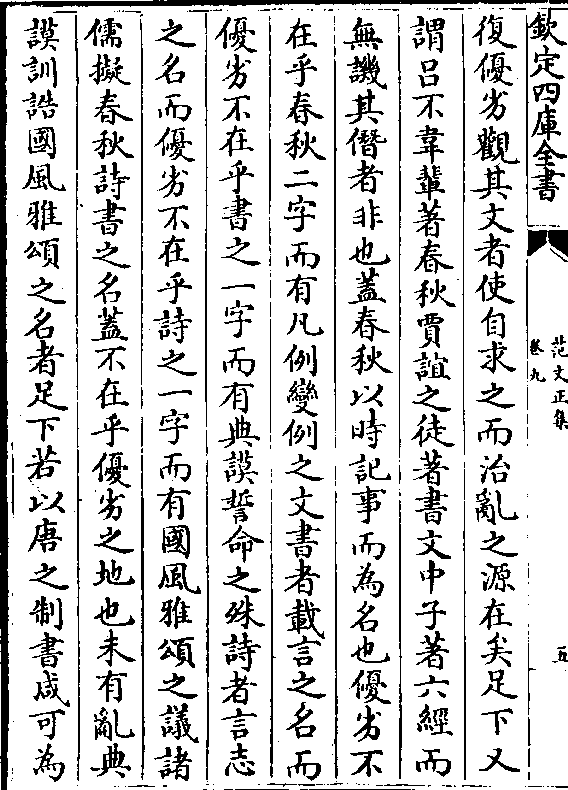 欽定四庫全書
范文正集
卷九
五
復優劣觀其文者使自求之而治亂之源在矣足下又
謂吕不韋輩著春秋賈誼之徒著書文中子著六經而
無譏其僭者非也蓋春秋以時記事而為名也優劣不
在乎春秋二字而有凡例變例之文書者載言之名而
優劣不在乎書之一字而有典謨誓命之殊詩者言志
之名而優劣不在乎詩之一字而有國風雅頌之議諸
儒擬春秋詩書之名蓋不在乎優劣之地也未有亂典
謨訓誥國風雅頌之名者足下若以唐之制書咸可為